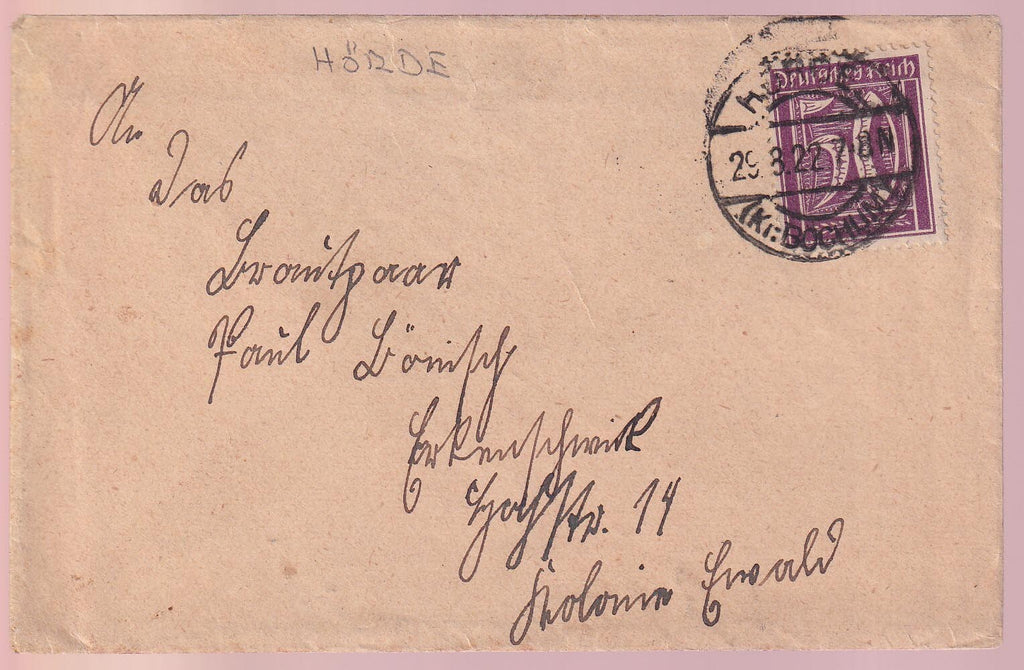 HÖRDE
Deutsches Reich
29.8.22.7-8N
(Kr. BOCHUM)
An
Das
Brautpaar
Paul Bönisch
Erkenschwick
Hochstr. 14
Kolonie Ewald